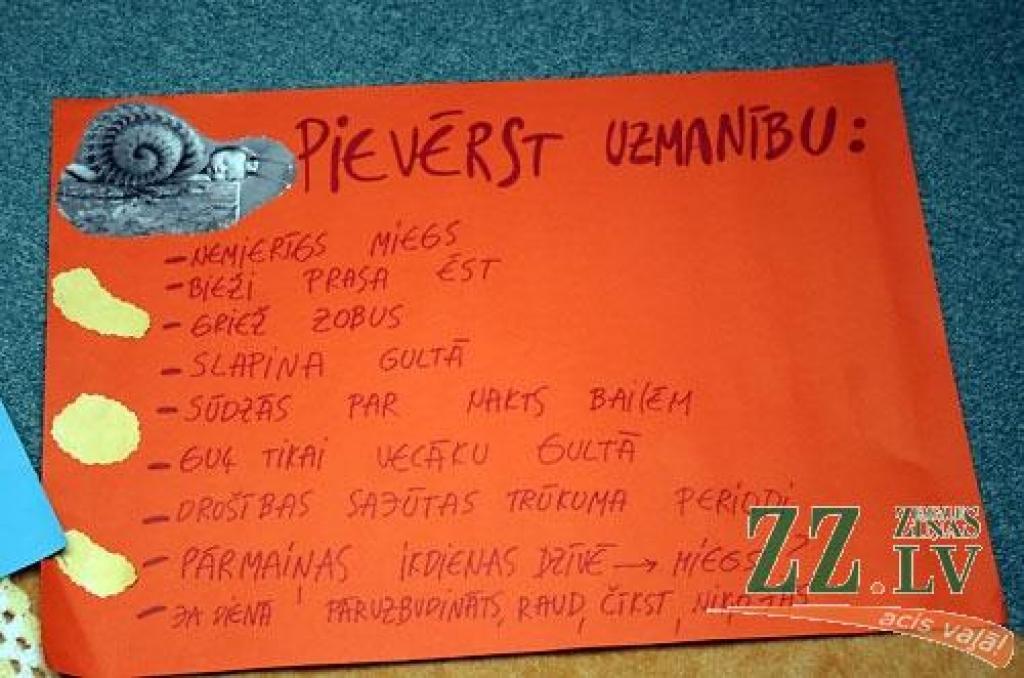 PIEVĒRST UZMANĪBU:
- NEMIERĪGS MIEGS
- BIEŽI PRASA ĒST
- GRIEŽ ZOBUS
- SLAPINA GULTĀ
- SŪDZĀS PAR NAKTS BAIĻĒM
- GUĻ TIKAI VECĀKU GULTĀ
- DROŠĪBAS SAJŪTAS TRŪKUMA PERIODI
- PĀRMAIŅAS IKDIENAS DZĪVĒ → MIEGS?
- JA DIENĀ PĀRUZBUDINĀTS, RAUD, ČĪKST,
ZEMGALES
ZIŅAS
ZZ.LV
acis vaļā!